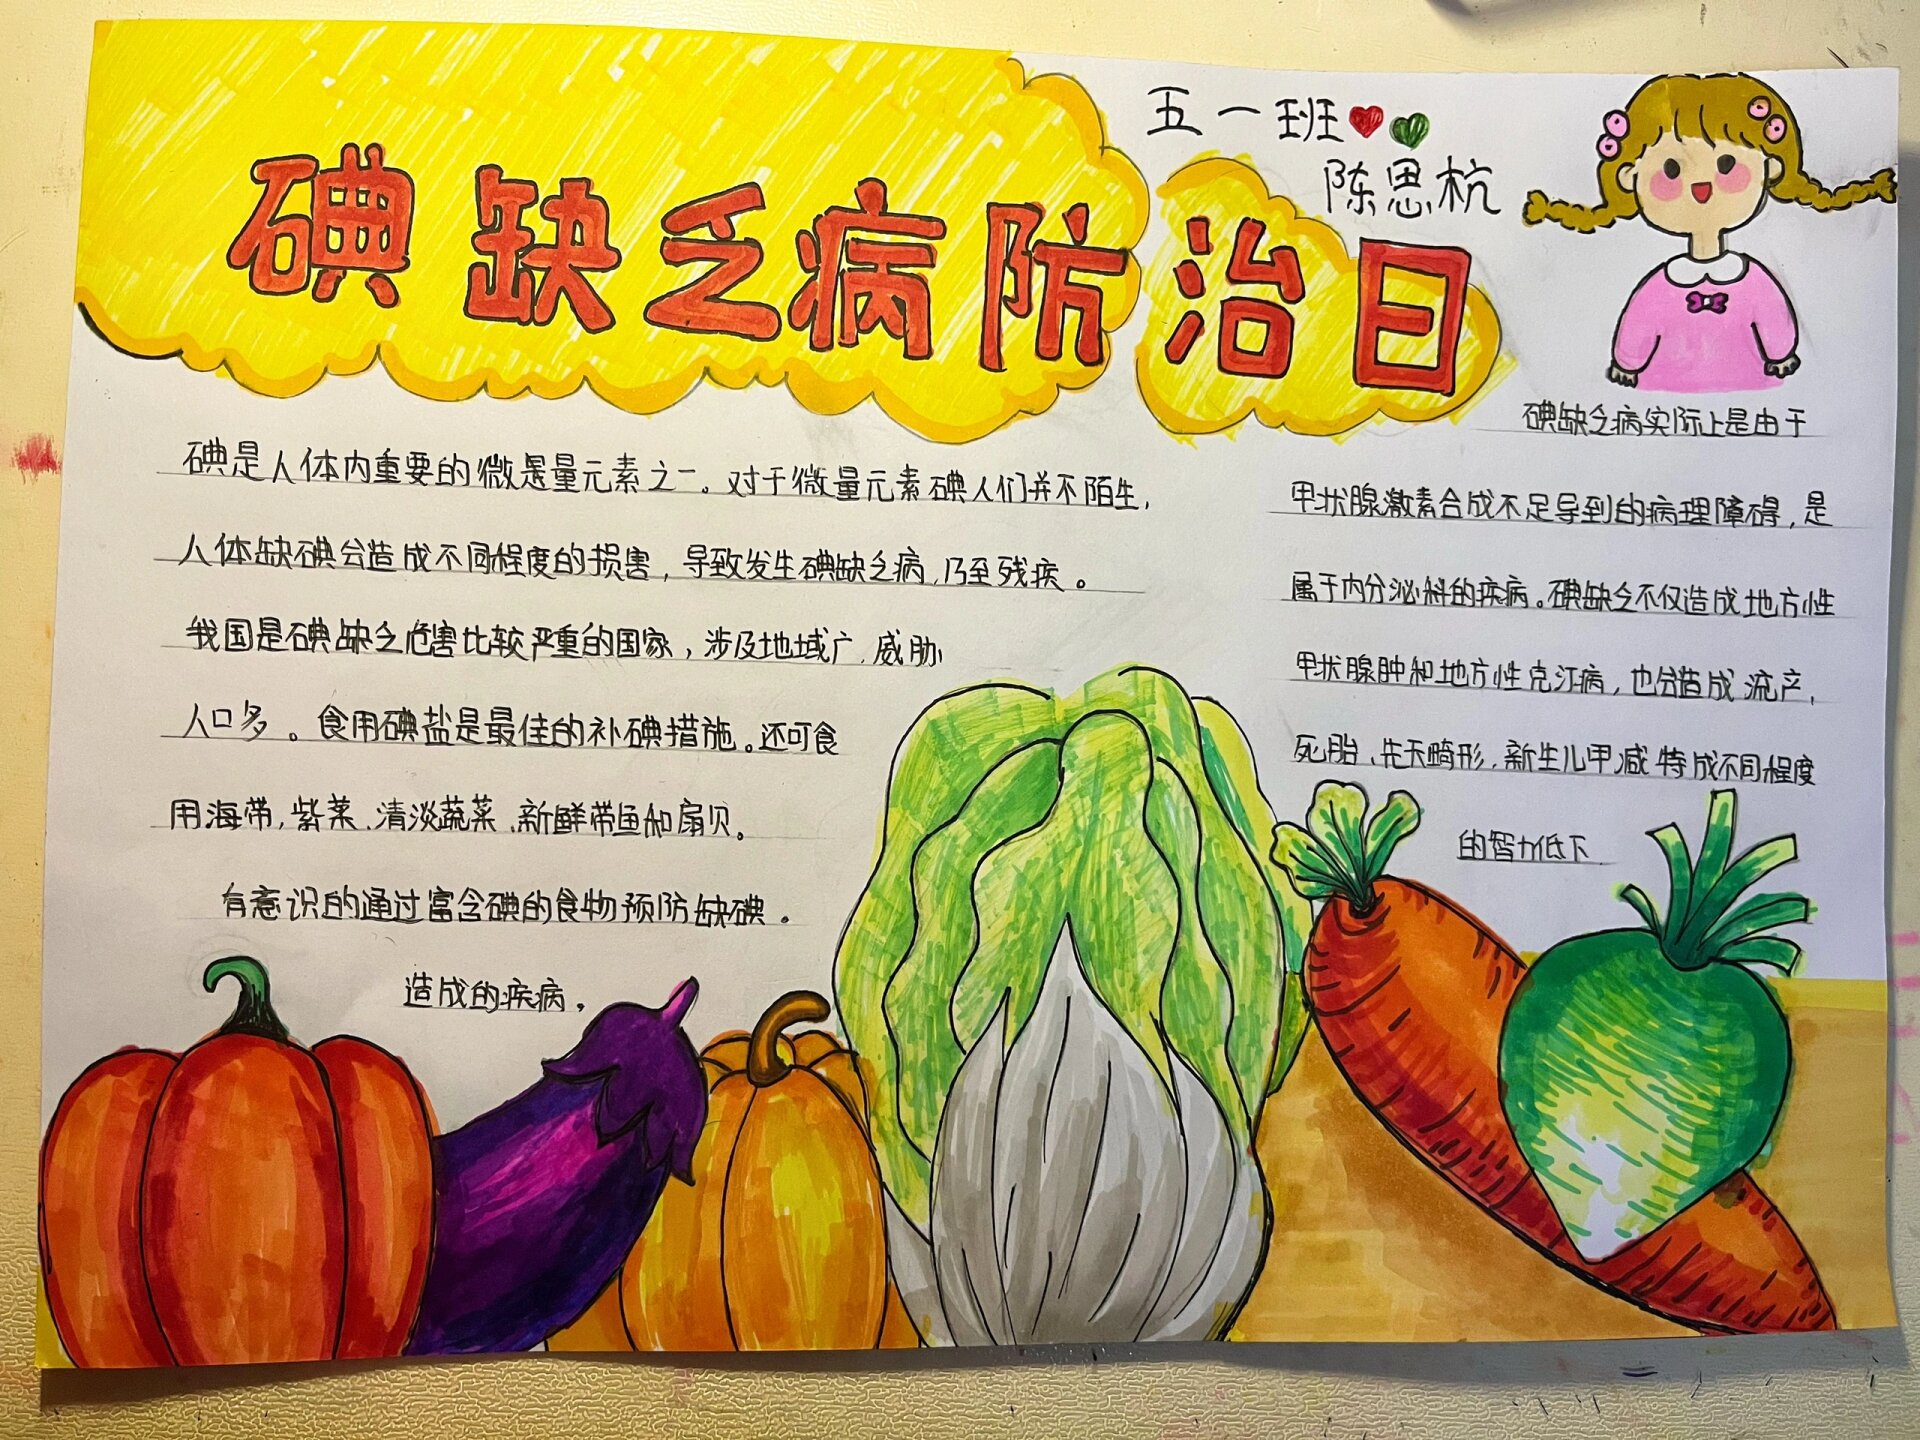 五一班
陈思杭
碘缺乏病防治日
碘是人体内重要的微量元素之一。对于微量元素碘人们并不陌生,
人体缺碘会造成不同程度的损害,导致发生碘缺乏病,乃至残疾。
我国是碘缺乏危害比较严重的国家,涉及地域广.威胁
人口多。食用碘盐是最佳的补碘措施。还可食
用海带,紫菜、清淡蔬菜、新鲜带鱼和扇贝。
有意识的通过富含碘的食物预防缺碘.
造成的疾病。
碘缺乏病实际上是由于
甲状腺激素合成不足导到的病理障碍,是
属于内分泌科的疾病。碘缺乏不仅造成地方性
甲状腺肿和地方性克汀病,也会造成流产,
死胎、先天畸形,新生儿甲减特成不同程度
的智力低下.